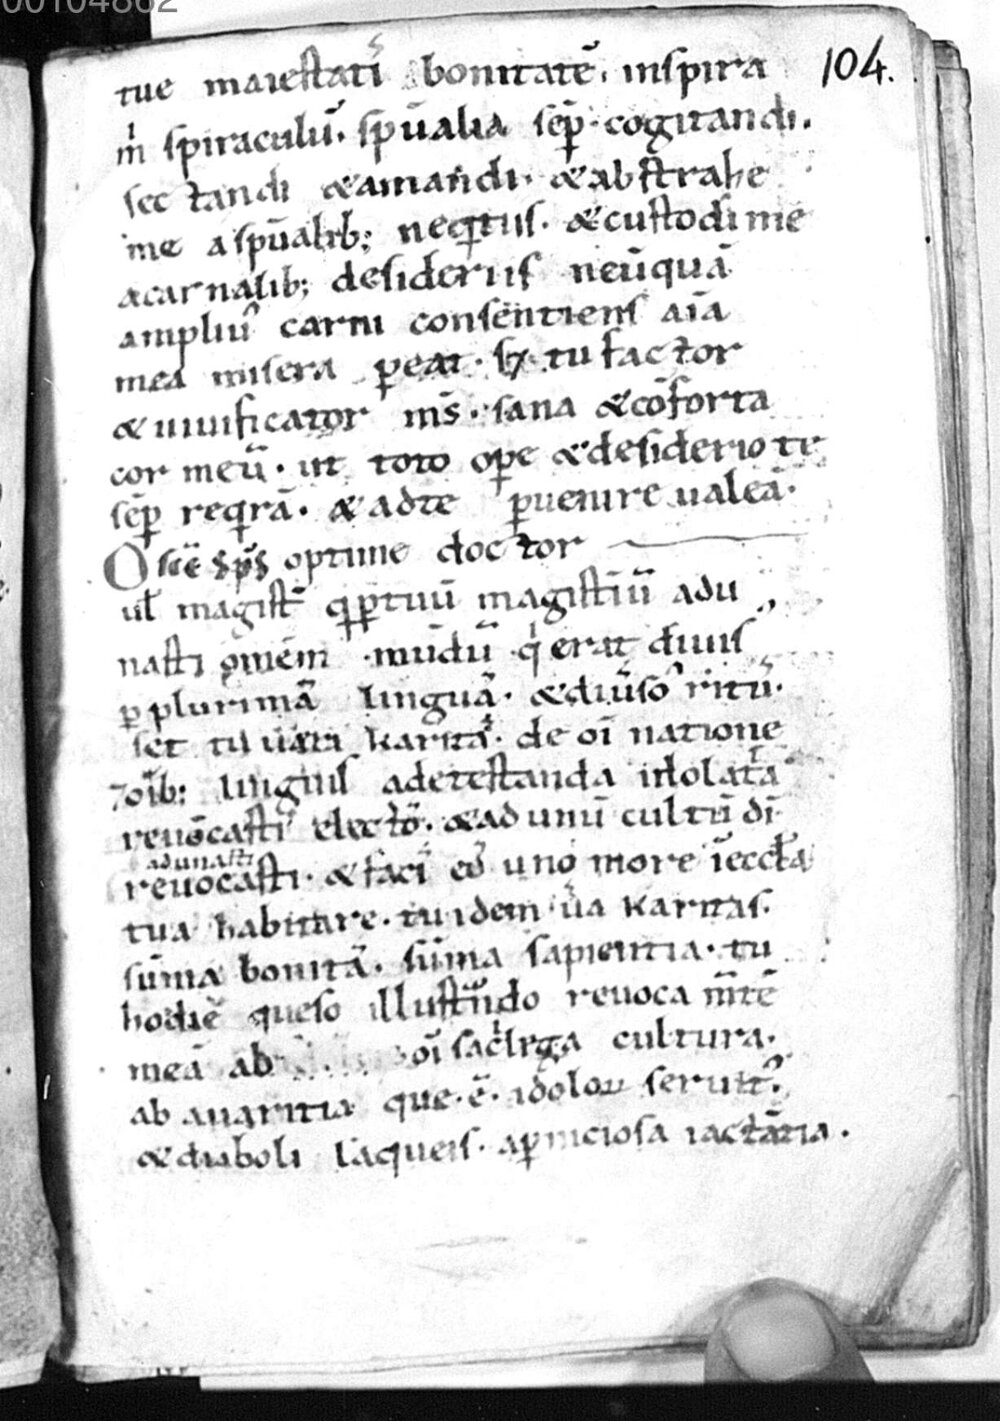 00104862
104.
tue maiestatiᷤ bonitatē. inspira
m̍ spiraculū. spūalia sēp cogitandi.
sectandi &amandi. &abstrahe
me aspūalib; neqͥtiis. &custodi me
acarnalib; desideriis neūquā
ampliu᷒ carni consentiens aīa
mea misera ꝑeat. sꝫ tu factor
&uiuificator ms̄. sana &cōforta
cor meū. ut toto oꝑe &desiderio te
sēp reqͥrā. &adte ꝑuenire ualeā.
O scē sp̄s optime doctor
ul̄ magist̄ qͥ ꝑ tuū magist̄iū adu
nasti om̄em mūdū qͥ erat diuis᷒
ꝑ plurimā linguā. &diūso᷒ ritū.
set tu uera karitas. de oī natione
⁊oīb; linguis adetestanda idolat̄a
reuōcasti electō. &ad unū cultū dī
adunasti
reuocasti. &facis eos uno more ī eccl̄a
tua habitare. tu idem ūa karitas.
sūma bonitas. sūma sapientia. tu
hodiē queso illustrando reuoca m̄tē
meā ab oī sacͥlega cultura.
ab auaritia que. ē. idoloꝝ seruit᷒
&diaboli laqueis. aꝑniciosa iactātia.